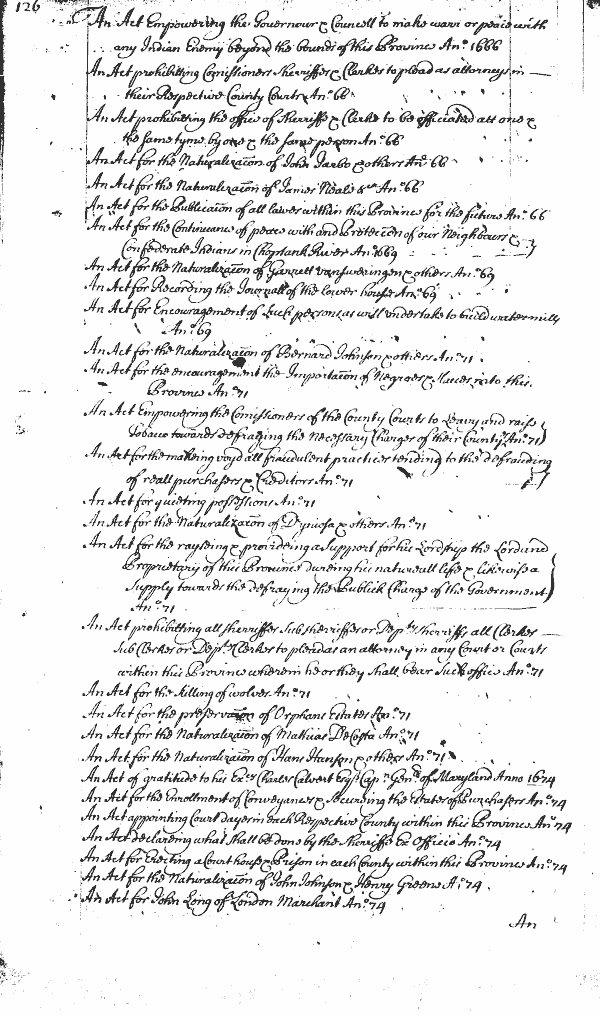 126
An Act Empowering the Governour & Councell to make warr or peace with
any Indian Enemy beyond the bounds of this Province Ano. 1666
An Act prohibiting Comissioners Sherriffes & Clerkes to plead as attorneys in —
their Respective County Courts Ano. 66
An Act prohibiting the office of Sherriffe & Clerke to be officiated att one &
the same tyme by one & the same person Ano. 66
An Act for the Naturalizacon of John Jarbo & others Ano. 66
An Act for the Naturalizacon of James Neale &ca Ano. 66
An Act for the Publicacon of all lawes within this Province for the future Ano. 66
An Act for the Continuance of peace with and Protection of our Neighbours &
Confederate Indians in Choptank River Ano. 1669
An Act for the Naturalizacon of Garrett vansweringen & others Ano. 69
An Act for Recording the Journall of the lower house Ano. 69
An Act for Encouragement of Such persons as will undertake to build water mills
Ano. 69
An Act for the Naturalizacon of Bernard Johnson & others Ano. 71
An Act for the encouragement the Importacon of Negroes & Slaves into this
Province Ano. 71
An Act Empowering the Comissioners of the County Courts to Leavy and raise
Tobacco towards defraying the Necessary Charges of their County Ano. 71
An Act for the makeing voyd all fraudulent practices tending to the defrauding
of reall purchasers & Creditors Ano. 71
An Act for quieting possessions Ano. 71
An Act for the Naturalizacon of & others Ano. 71
An Act for the rayseing & provideing a Support for his Lordship the Lord and
Proprietary of this Province dureing his naturall life & likewise a
Supply towards the defraying the Publick Charge of the Government
Ano. 71
An Act prohibiting all sherriffes Sub sherriffes or Depty sherriffs all Clerkes —
Sub Clerkes or Depty Clerkes to plead as an attorney in any Court or Courts
within this Province wherein he or they shall bear Such office Ano. 71
An Act for the killing of wolves Ano. 71
An Act for the preservacon of Orphans Estates Ano. 71
An Act for the Naturalizacon of Mathias DeCosta Ano. 71
An Act for the Naturalizacon of Hans Hanson & others Ano. 71
An Act of gratitude to his Excy Charles Calvert Esqr Capt. Genll of Maryland Anno 1674
An Act for the Enrollment of Conveyances & Secureing the Estates of Purchasers Ano. 74
An Act appointing Court dayes in each Respective County within this Province Ano. 74
An Act declareing what shall be done by the Sherriffe Ex Officio Ano. 74
An Act for Erecting a Court house & Prison in each County within this Province Ano. 74
An Act for the Naturalizacon of John Johnson & Henry Greene Ao. 74
An Act for John Long of London Marchant Ano. 74
An